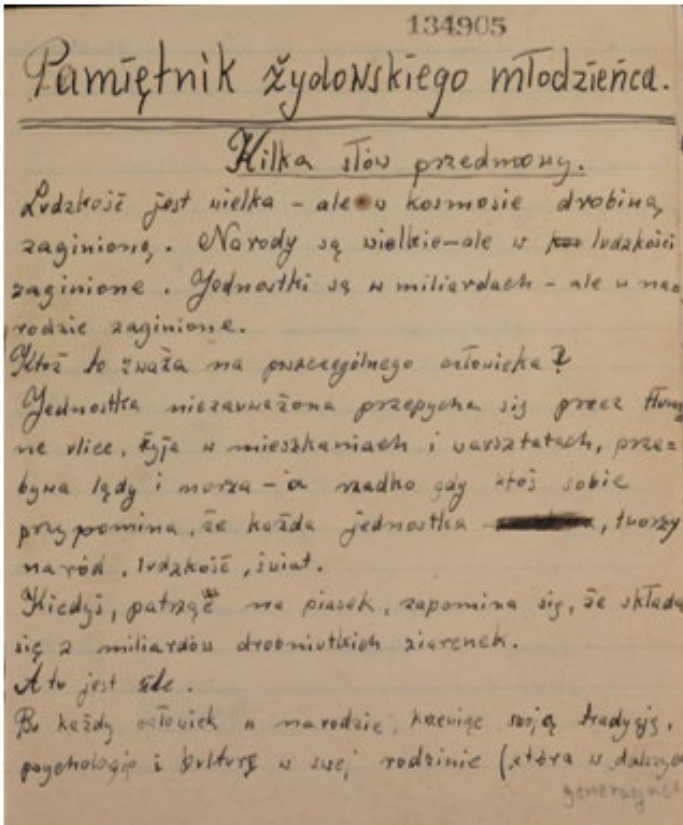 134905
Pamiętnik żydowskiego młodzieńca.
Kilka słów przedmowy.
Ludzkość jest wielka – ale w kosmosie drobiną
zaginioną. Narody są wielkie – ale w ludzkości
zaginione. Jednostki są w miliardach – ale w na=
rodzie zaginione.
Któż to zważa na poszczególnego człowieka?
Jednostka niezauważona przepycha się przez tłum
ne ulice, żyje w mieszkaniach i warsztatach, prze=
bywa lądy i morza – a rzadko gdy ktoś sobie
przypomina, że każda jednostka, tworzy
naród, ludzkość, świat.
Kiedyś, patrząc na piasek, zapomina się, że składa
się z miliardów drobniutkich ziarenek.
A tu jest źle.
Bo każdy człowiek w narodzie, krzewiąc swoją tradycję,
psychologię i kulturę w swej rodzinie (która w dalszych
generacjach